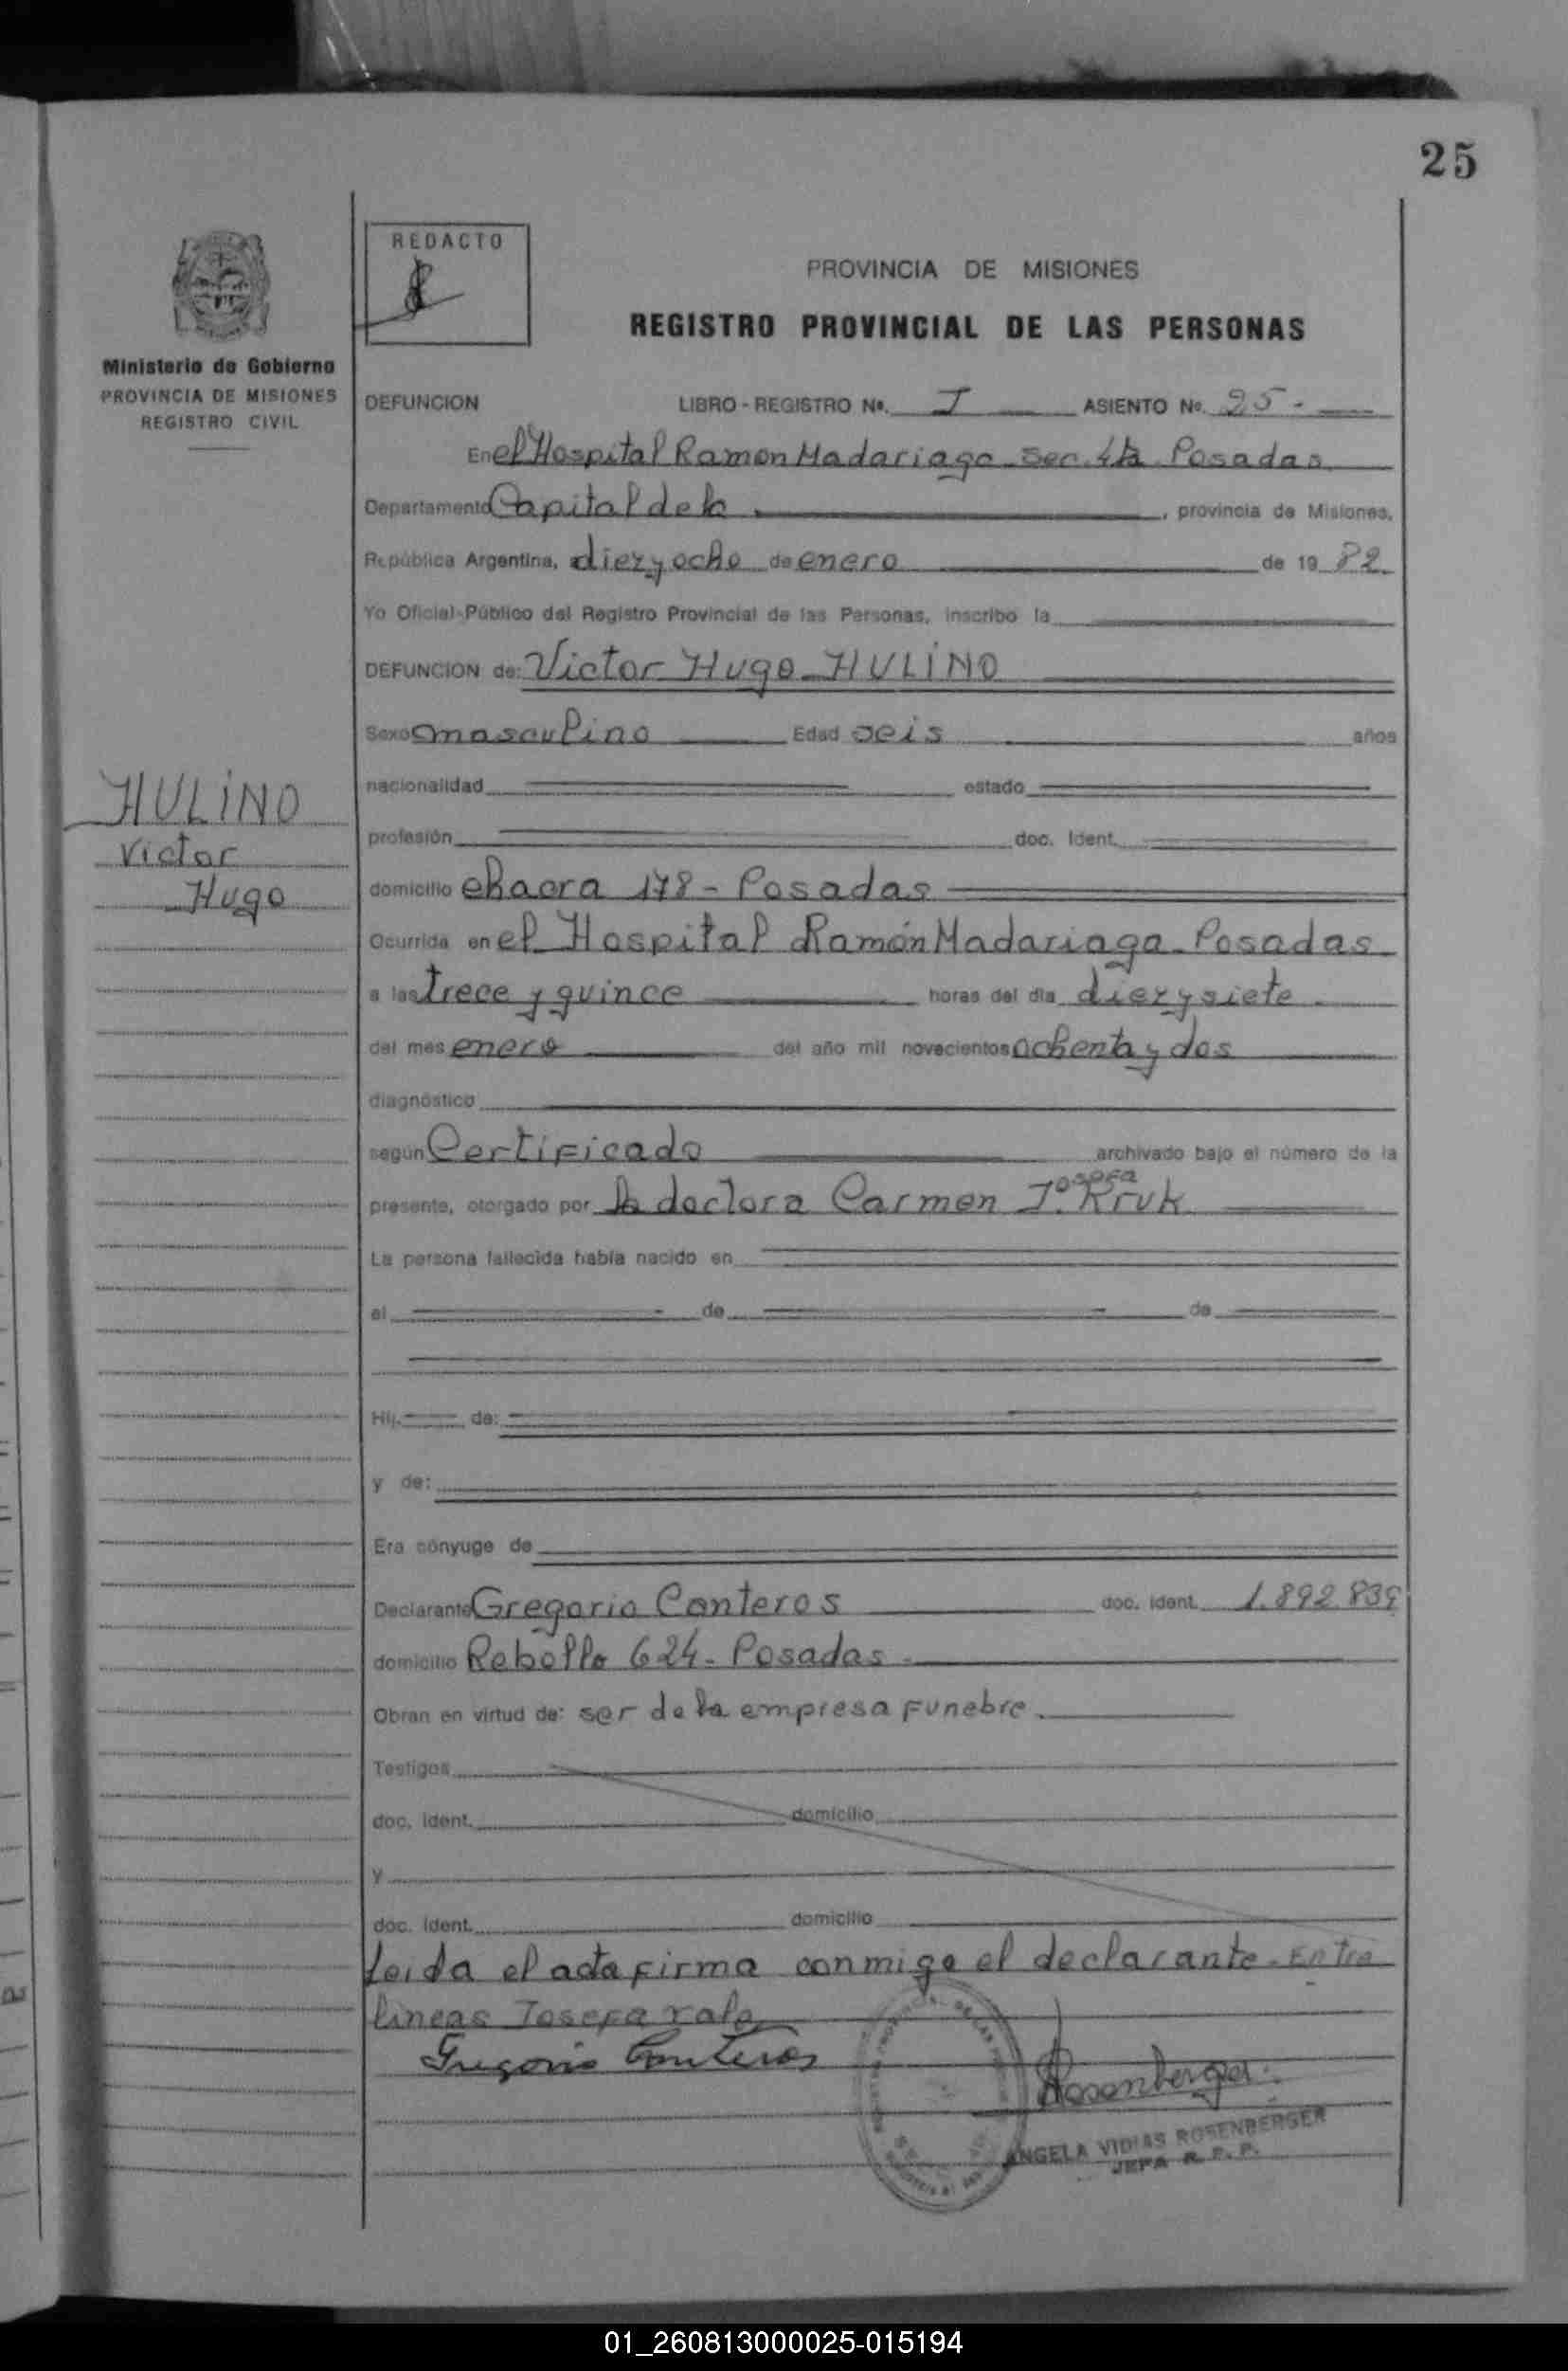 25
REDACTO
PROVINCIA DE MISIONES
REGISTRO PROVINCIAL DE LAS PERSONAS
Ministerio de Gobierno
PROVINCIA DE MISIONES
REGISTRO CIVIL
DEFUNCION LIBRO - REGISTRO No. I ASIENTO No. 25 -
En el Hospital Ramon Madariaga Sec. 4ta Posadas
Departamento Capital de la, provincia de Misiones,
República Argentina, diez y ocho de enero de 19 82
Yo Oficial Público del Registro Provincial de las Personas, inscribo la
DEFUNCION de: Victor Hugo HULINO
Sexo masculino Edad seis años
nacionalidad estado
HULINO
Victor
Hugo
profesión doc. Ident.
domicilio chacra 178 - Posadas
Ocurrida en el Hospital Ramón Madariaga Posadas
a las trece y quince horas del día diez y siete
del mes enero del año mil novecientos ochenta y dos
diagnóstico
según Certificado archivado bajo el número de la
presente, otorgado por la doctora Carmen J. osefa Kruk
La persona fallecida había nacido en
el de de
Hij de:
y de:
Era cónyuge de
Declarante Gregorio Conteros doc. ident. 1.892.839
domicilio Rebollo 624 - Posadas -
Obran en virtud de: ser de la empresa funebre.
Testigos
doc. ident. domicilio
y
doc. ident. domicilio
Leida el acta firma conmigo el declarante - Entre
lineas Josefa vale
Gregorio Conteros
Rosenberger
ANGELA VIDIAS ROSENBERGER
JEFA R. P. P.
01_260813000025-015194